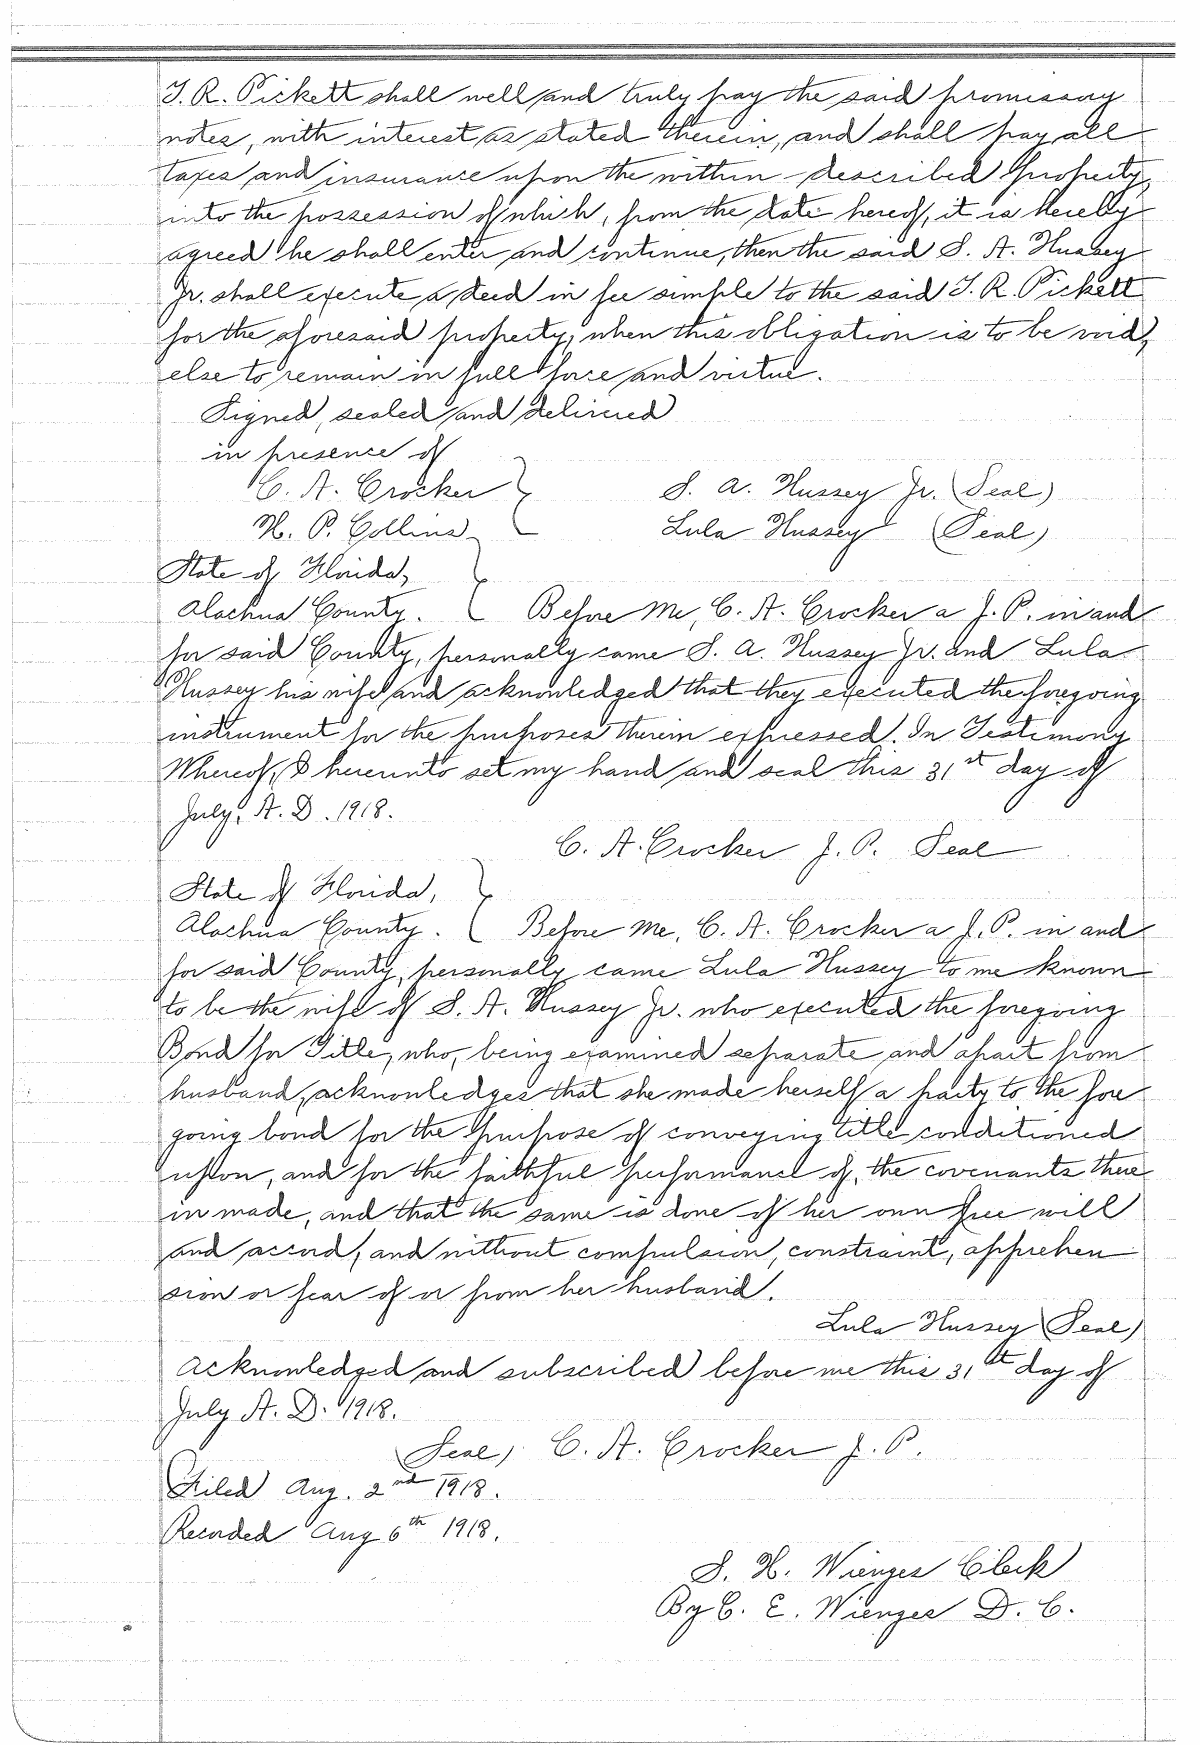 J. R. Pickett shall well and truly pay the said promissory
notes, with interest as stated therein, and shall pay all
taxes and insurance upon the within-described property,
into the possession of which, from the date hereof, it is hereby
agreed he shall enter and continue, then the said S. A. Hussey
Jr. shall execute a deed in fee simple to the said J. R. Pickett
for the aforesaid property, when this obligation is to be void,
else to remain in full force and virtue.
Signed, sealed and delivered
in presence of
C. A. Crocker } S. A. Hussey Jr. (Seal)
H. P. Collins Lula Hussey (Seal)
State of Florida, }
Alachua County. Before Me, C. A. Crocker a J. P. in and
for said County, personally came S. A. Hussey Jr. and Lula
Hussey his wife and acknowledged that they executed the foregoing
instrument for the purposes therein expressed. In Testimony
Whereof, I hereunto set my hand and seal this 31st day of
July, A. D. 1918.
C. A. Crocker J. P. Seal
State of Florida, }
Alachua County. Before Me, C. A. Crocker a J. P. in and
for said County, personally came Lula Hussey to me known
to be the wife of S. A. Hussey Jr. who executed the foregoing
Bond for Title, who, being examined separate and apart from
husband, acknowledges that she made herself a party to the fore
going bond for the purpose of conveying title conditioned
upon, and for the faithful performance of, the covenants there
in made, and that the same is done of her own free will
and accord, and without compulsion, constraint, apprehen
sion or fear of or from her husband.
Lula Hussey (Seal)
Acknowledged and subscribed before me this 31st day of
July A. D. 1918.
(Seal) C. A. Crocker J. P.
Filed Aug. 2nd 1918.
Recorded Aug 6th 1918.
S. H. Wienges Clerk
By C. E. Wienges D. C.